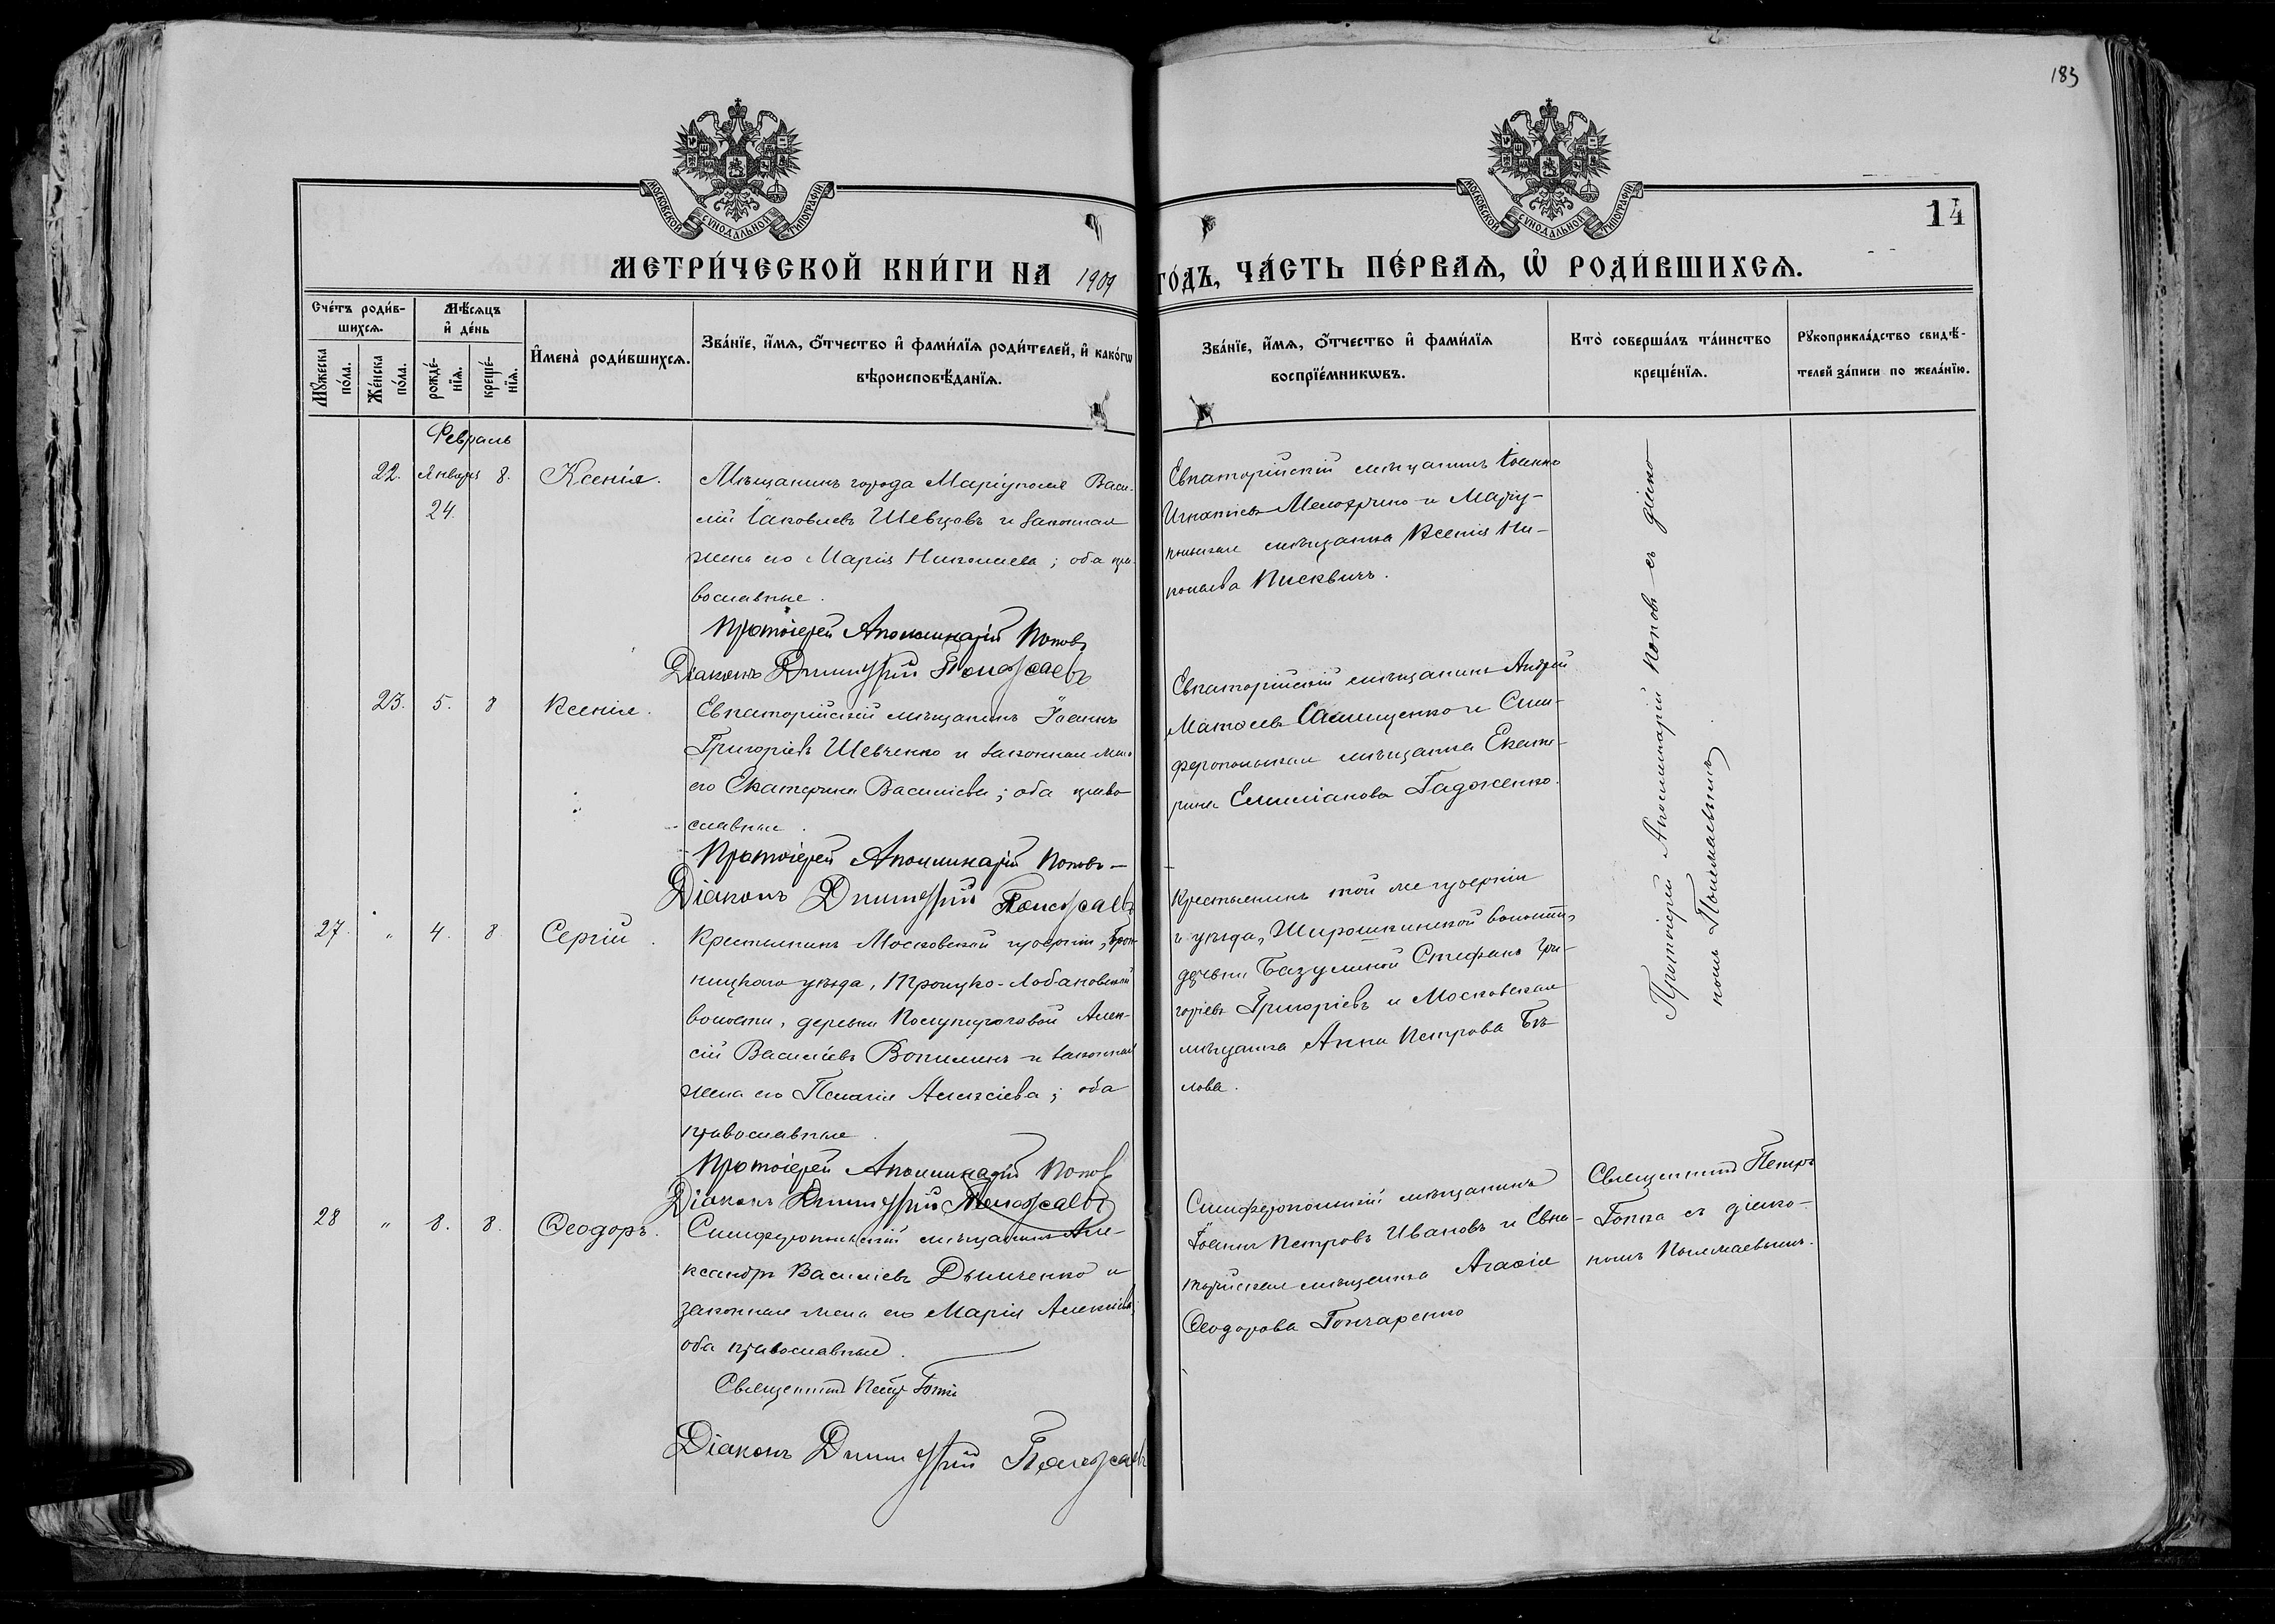 183
14
МОСКОВСКОЙ СѴНОДАЛЬНОЙ ТИПОГРАФІИ
МОСКОВСКОЙ СѴНОДАЛЬНОЙ ТИПОГРАФІИ
МЕТРИ́ЧЕСКОЙ КНИ́ГИ НА 1909 ГО́ДЪ, ЧА́СТЬ ПЕ́РВАѦ, Ѡ҆ РОДИ́ВШИХСѦ.
Сче́тъ роди́в-
шихсѧ.
Мꙋ́жеска по́ла.
Же́нска по́ла.
Мѣ́сѧцъ
и҆ де́нь
рожде́-нїѧ.
креще́-нїѧ.
И҆мена̀ роди́вшихсѧ.
Зва́нїе, и҆́мѧ, ѻ҆́тчество и҆ фами́лїѧ роди́телей, и҆ како́гѡ
вѣроисповѣ́данїѧ.
Зва́нїе, и҆́мѧ, ѻ҆́тчество и҆ фами́лїѧ
воспрїе́мникѡвъ.
Кто̀ соверша́лъ та́инство
креще́нїѧ.
Рꙋкоприкла́дство свидѣ́-
телей за́писи по жела́нїю.
Февраль
22. Января 24. 8. Ксенія.
Мѣщанинъ города Маріуполя Васи-
лій Іаковлевъ Шевцовъ и законная
жена его Марія Николаева; оба пра-
вославные.
Протоіерей Аполлинарій Поповъ
Діаконъ Димитрій
Евпаторійскій мѣщанинъ Іоаннъ
Игнатіевъ и Маріу-
польская мѣщанка Ксенія Ни-
колаева
23. 5. 8 Ксенія.
Евпаторійскій мѣщанинъ Іоаннъ
Григоріевъ Шевченко и законная жена
его Екатерина Василіева; оба право-
славные.
Протоіерей Аполлинарій Поповъ
Діаконъ Димитрій
Евпаторійскій мѣщанинъ Андрей
и Сим-
феропольская мѣщанка Екате-
рина Емиліанова Гадженко.
27. " 4. 8. Сергій.
Крестьянинъ Московской губерніи, Брон-
ницкаго уѣзда, Троицко-Лобановской
волости, деревни Алек-
сій Василіевъ и законная
жена его Пелагія Алексіева; оба
православные.
Протоіерей Аполлинарій Поповъ
Діаконъ Димитрій
Крестьянинъ той же губерніи
и уѣзда, волости,
деревни Стефанъ Гри-
горіевъ Григоріевъ и Московская
мѣщанка Анна Петрова Бѣ-
лова.
Протоіерей Аполлинарій Поповъ съ діако-
номъ
28 " 8. 8. Ѳеодоръ.
Симферопольскій мѣщанинъ Але-
ксандръ Василіевъ Дымченко и
законная жена его Марія Алексіева;
оба православные.
Священникъ Петръ
Діаконъ Димитрій
Симферопольскій мѣщанинъ
Іоаннъ Петровъ Ивановъ и Евпа-
торійская мѣщанка Агаѳія
Ѳеодорова Гончаренко
Священникъ Петръ
съ діако-
номъ